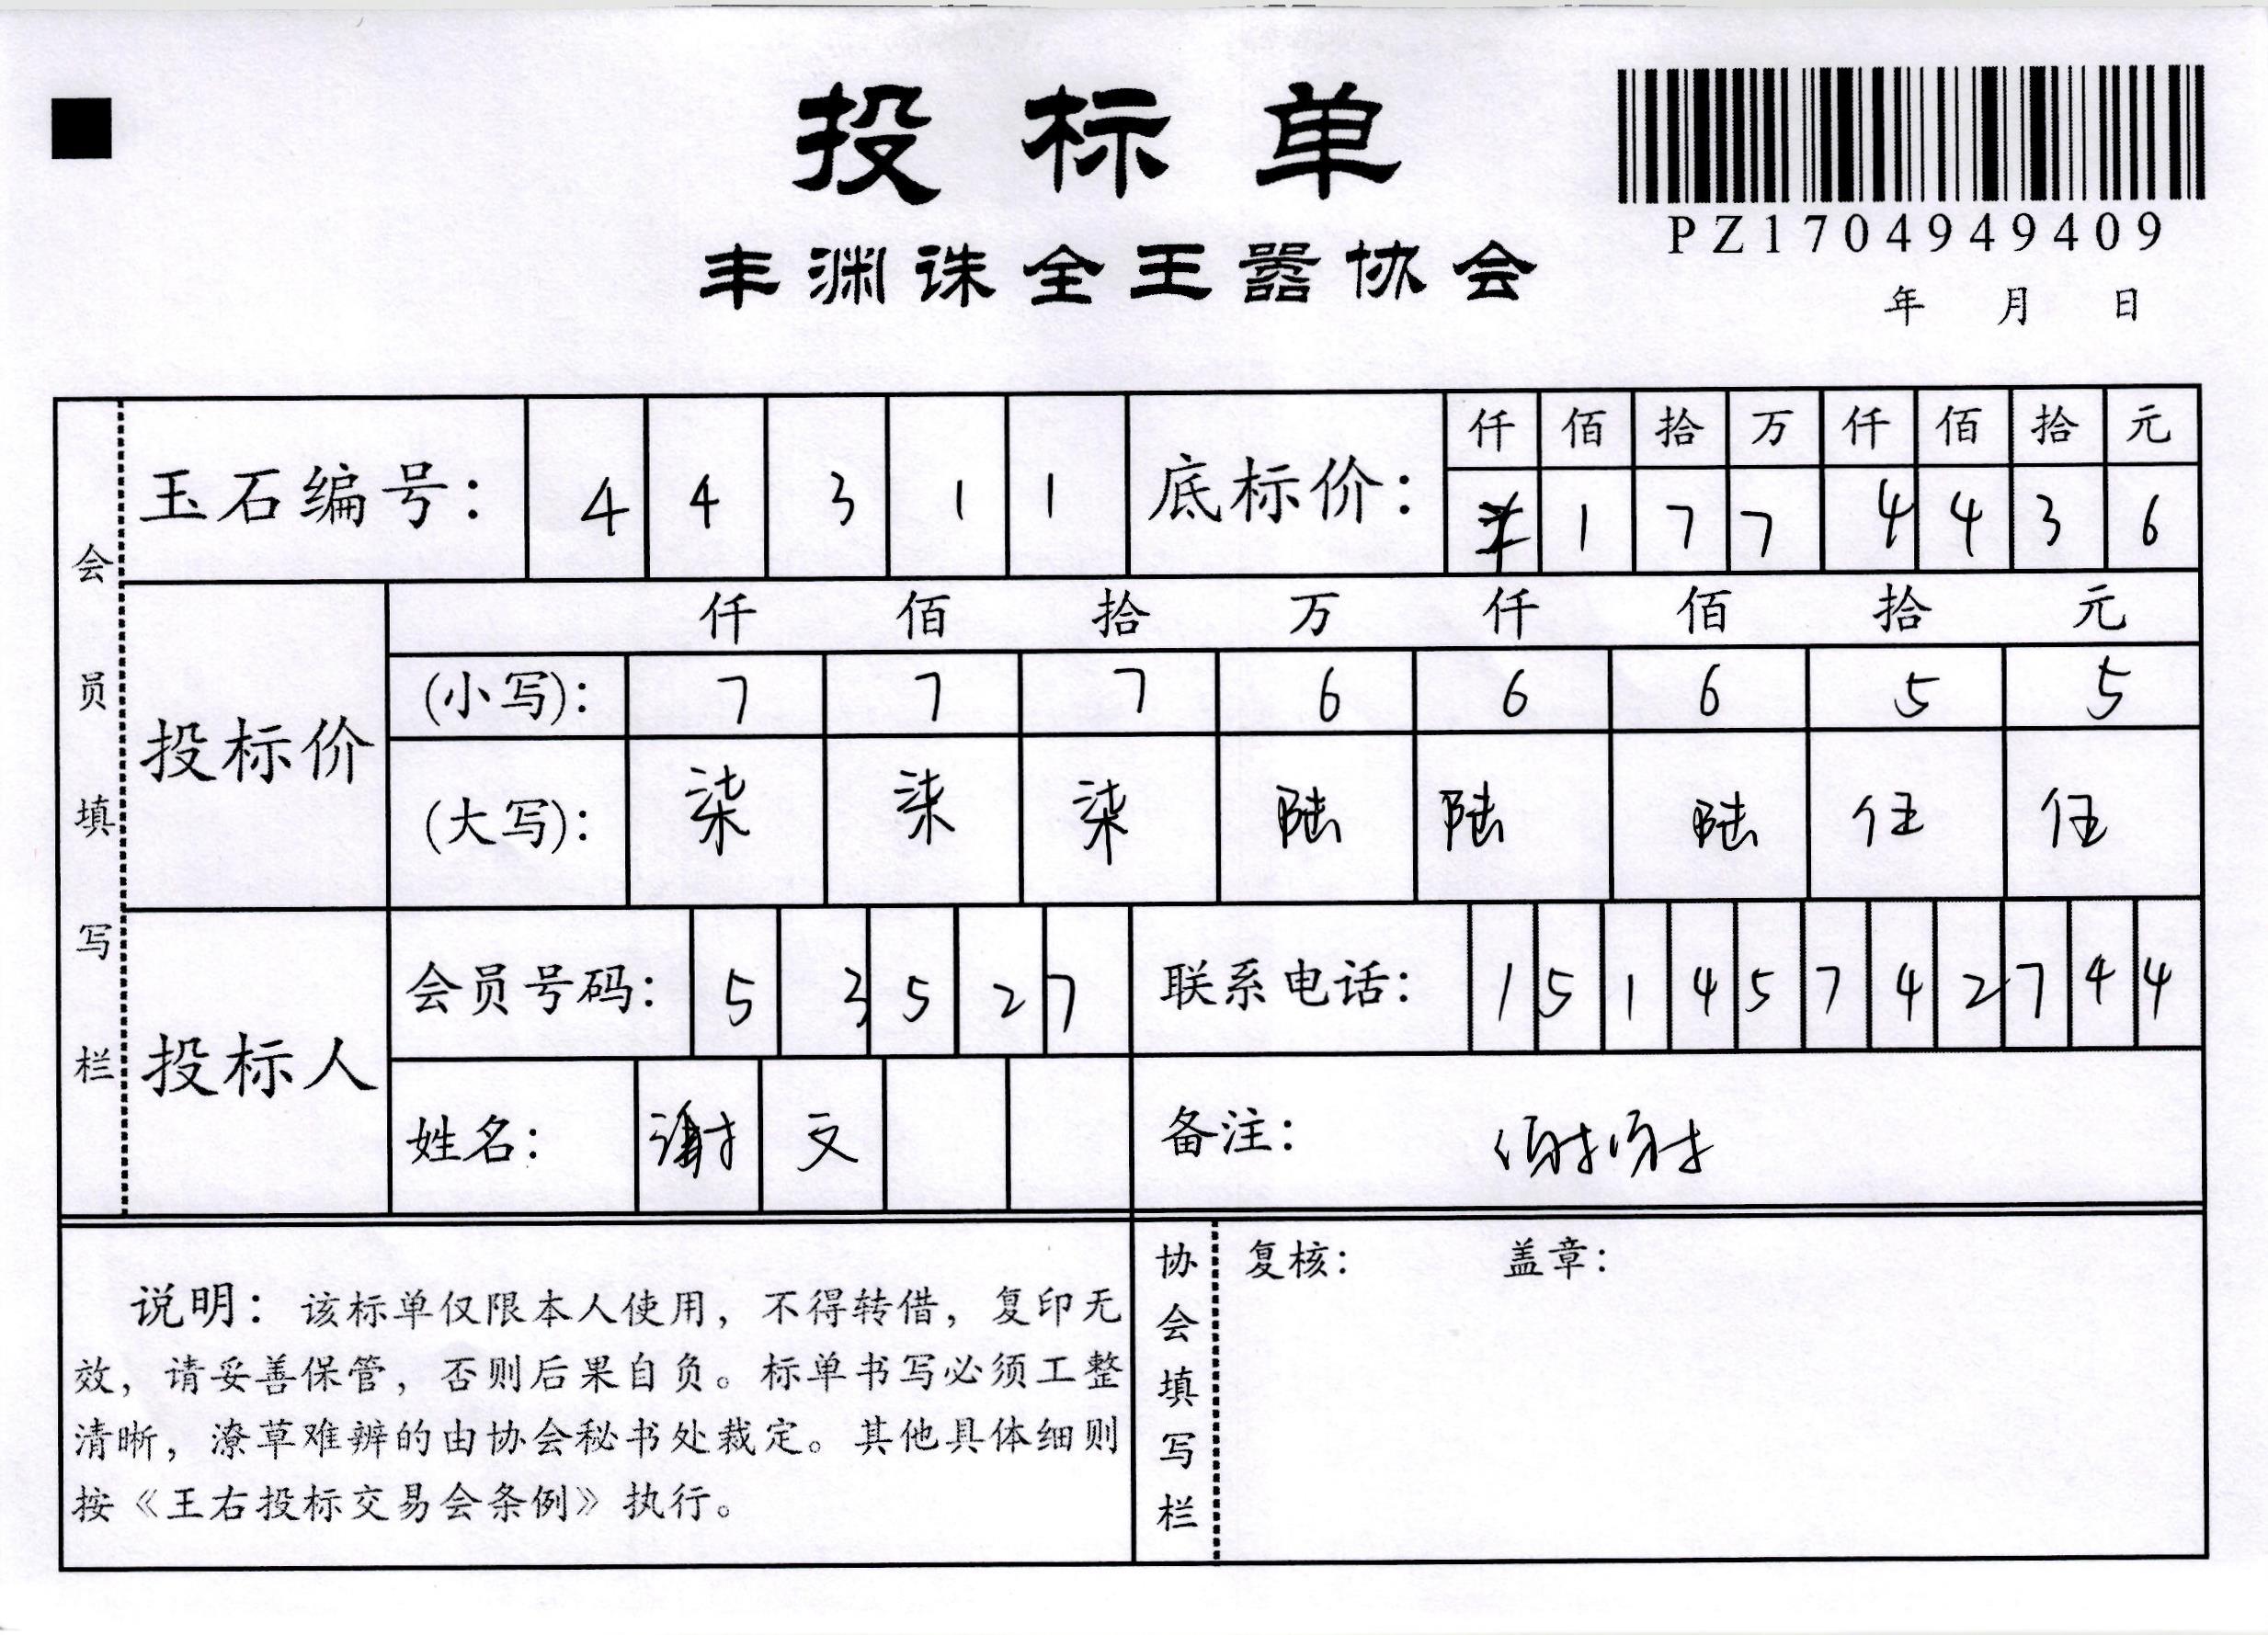 投标单
PZ1704949409
丰渊诛全王嚣协会
年 月 日
会员填写栏
玉石编号： 4 4 3 1 1
底标价： 仟 佰 拾 万 仟 佰 拾 元
1 7 7 4 4 3 6
投标价
仟 佰 拾 万 仟 佰 拾 元
(小写)： 7 7 7 6 6 6 5 5
(大写)： 柒 柒 柒 陆 陆 陆 伍 伍
投标人
会员号码： 5 3 5 2 7
联系电话： 1 5 1 4 5 7 4 2 7 4 4
姓名： 谢 文
备注：
说明：该标单仅限本人使用，不得转借，复印无
效，请妥善保管，否则后果自负。标单书写必须工整
清晰，潦草难辨的由协会秘书处裁定。其他具体细则
按《王右投标交易会条例》执行。
协会填写栏
复核： 盖章：